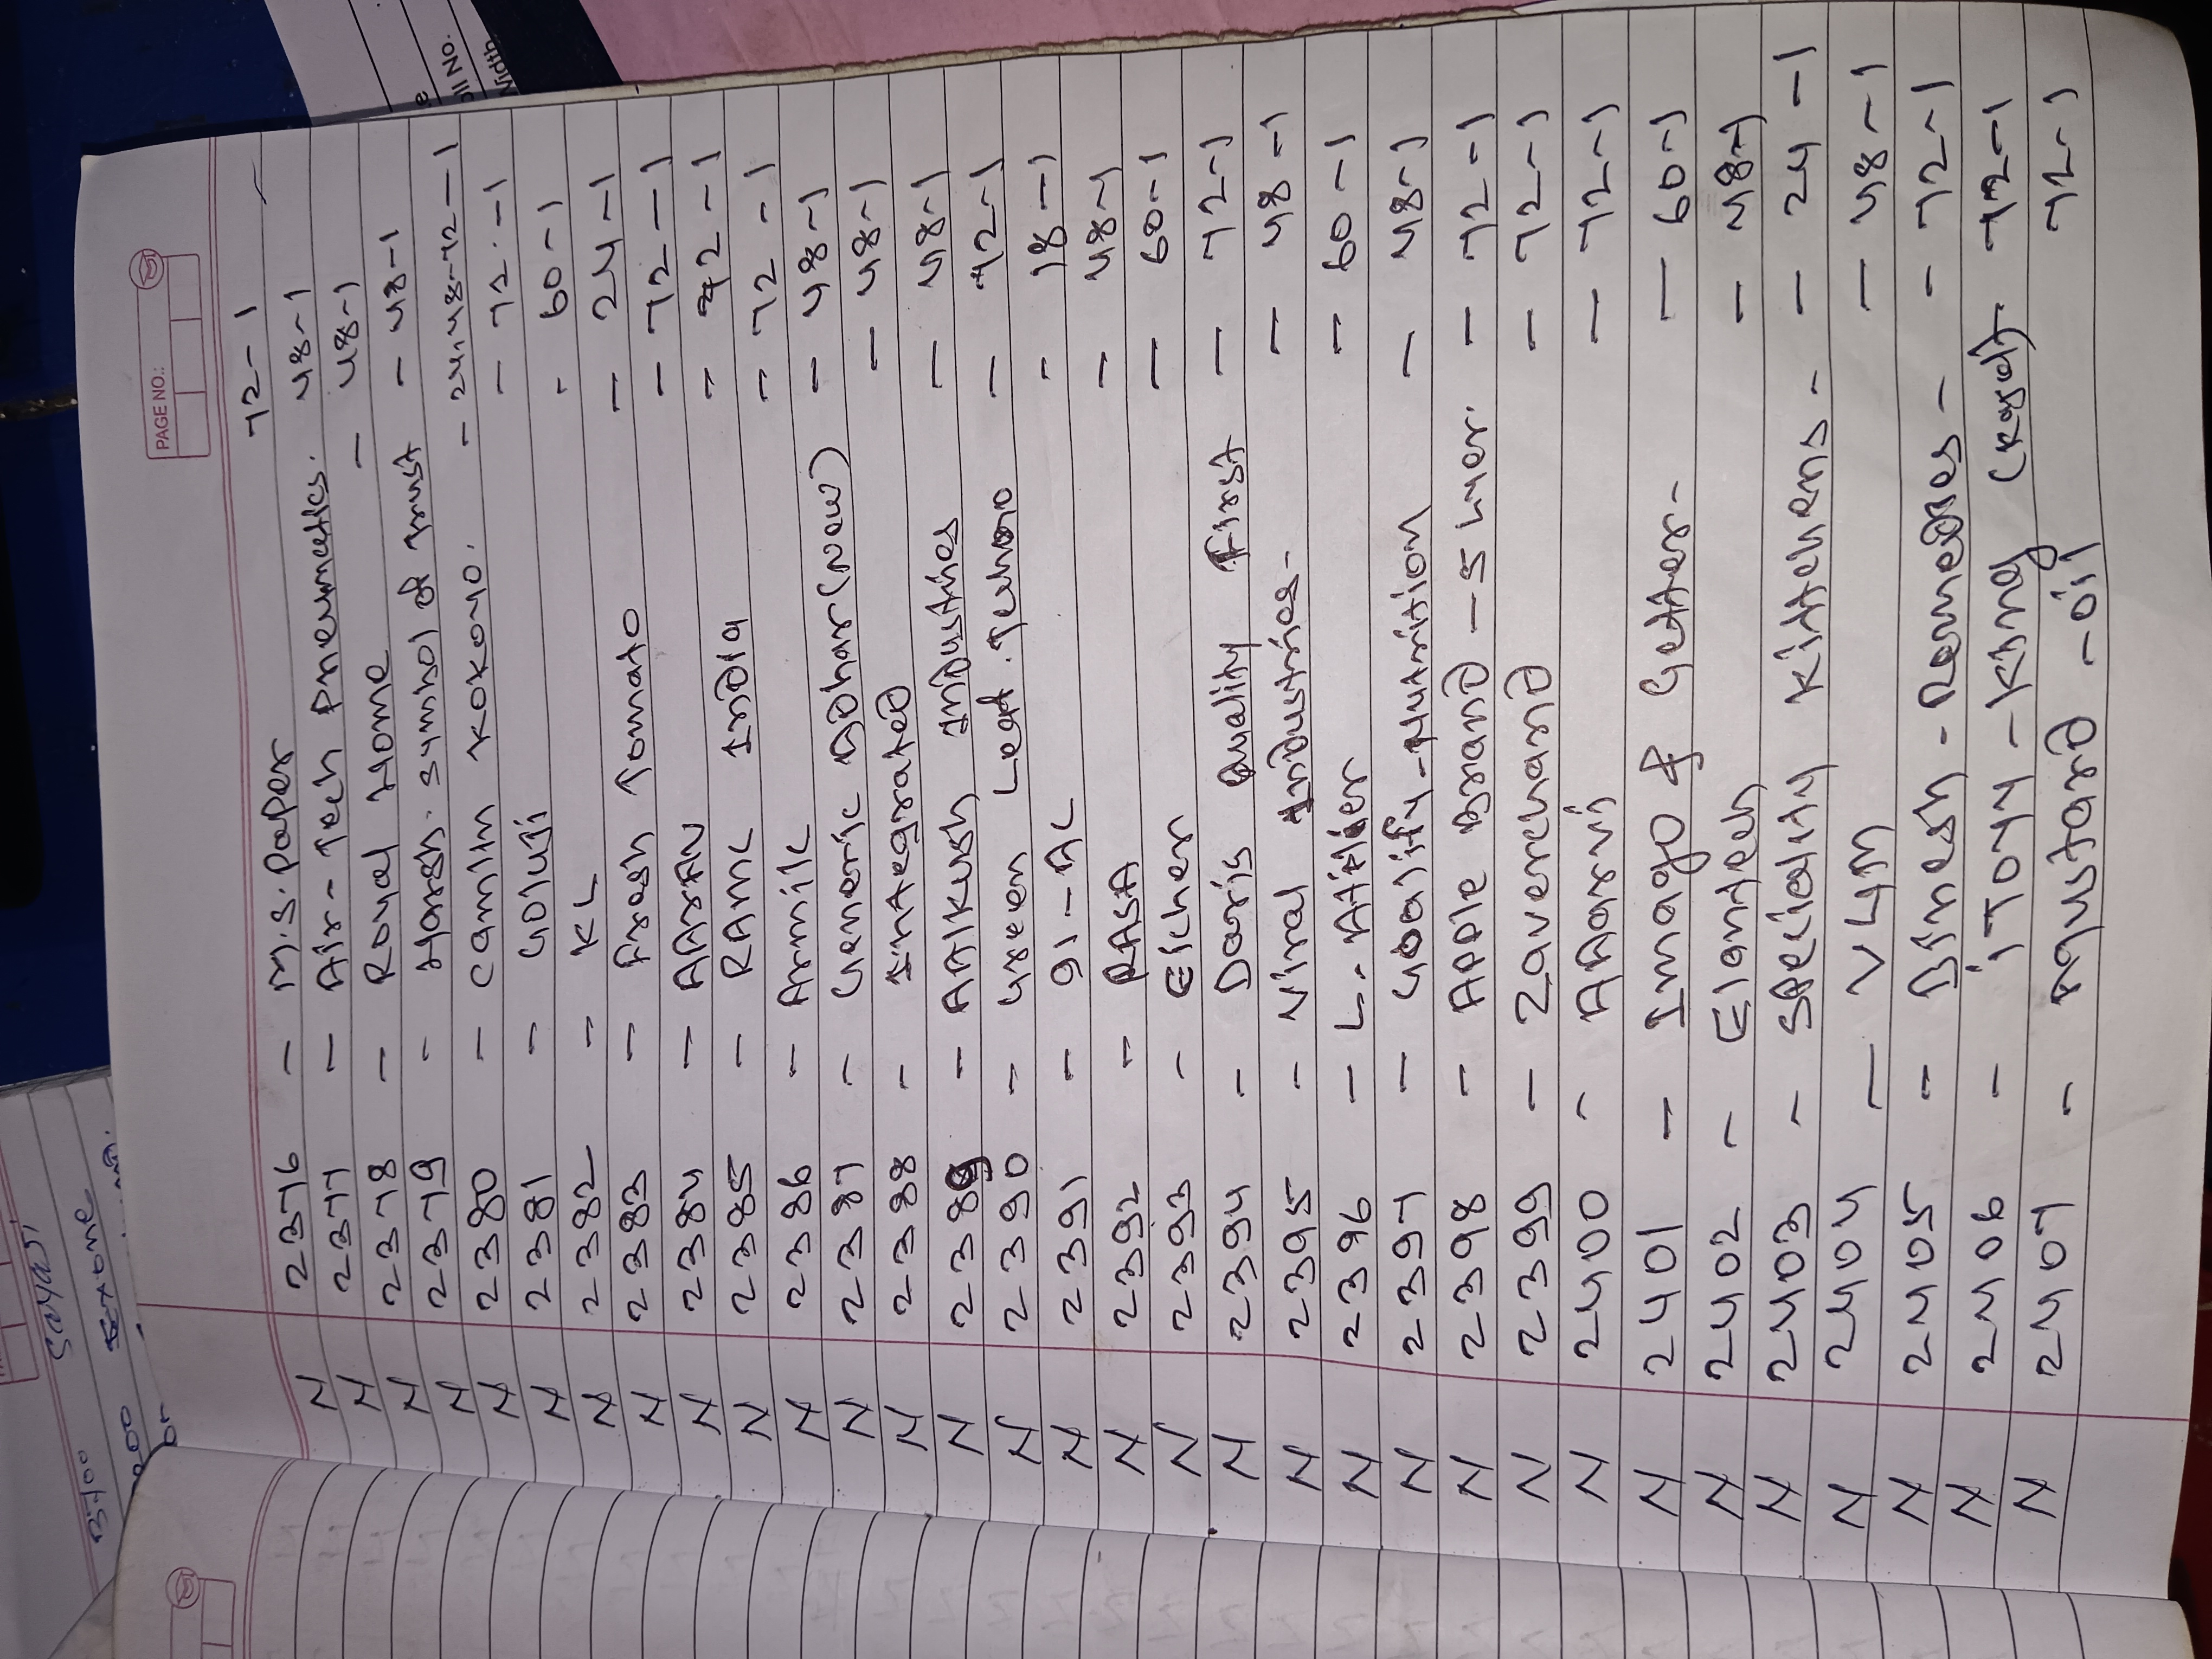 PAGE NO.:
N 2376 - M.S. Paper 72-1
N 2377 - Air-Tech Pneumatics. 48-1
N 2378 - Royal Home - 48-1
N 2379 - Harsh. Symbol of Trust - 48-1
N 2380 - Camlin KOKOYO. - 24,48-72-1
N 2381 - Goluji - 72-1
N 2382 - KL - 60-1
N 2383 - Fresh Tomato - 24-1
N 2384 - AArAN - 72-1
N 2385 - RAmc India - 72-1
N 2386 - Armilc - 72-1
N 2387 - Generic Adhar (New) - 48-1
N 2388 - Integrated - 48-1
N 2389 - AAIKUSH Industries - 48-1
N 2390 - Green Leaf. Techno - 72-1
N 2391 - 91-AC - 18-1
N 2392 - RASA - 48-1
N 2393 - Eicher - 60-1
N 2394 - Daris Quality First - 72-1
N 2395 - Viral Industries - 48-1
N 2396 - L.-Attier - 60-1
N 2397 - Goaify-Nutrition - 48-1
N 2398 - Apple Brand - 5 Lyer. - 72-1
N 2399 - Zaverchand - 72-1
N 2400 - AAarvi - 72-1
N 2401 - Imago & Getter - 60-1
N 2402 - Elantech - 48-1
N 2403 - Speciality Kitchens - 24-1
N 2404 - VLM - 48-1
N 2405 - Dinesh - Remedies - 72-1
N 2406 - iTOY - King 72-1
N 2407 - Mustard - oil 72-1